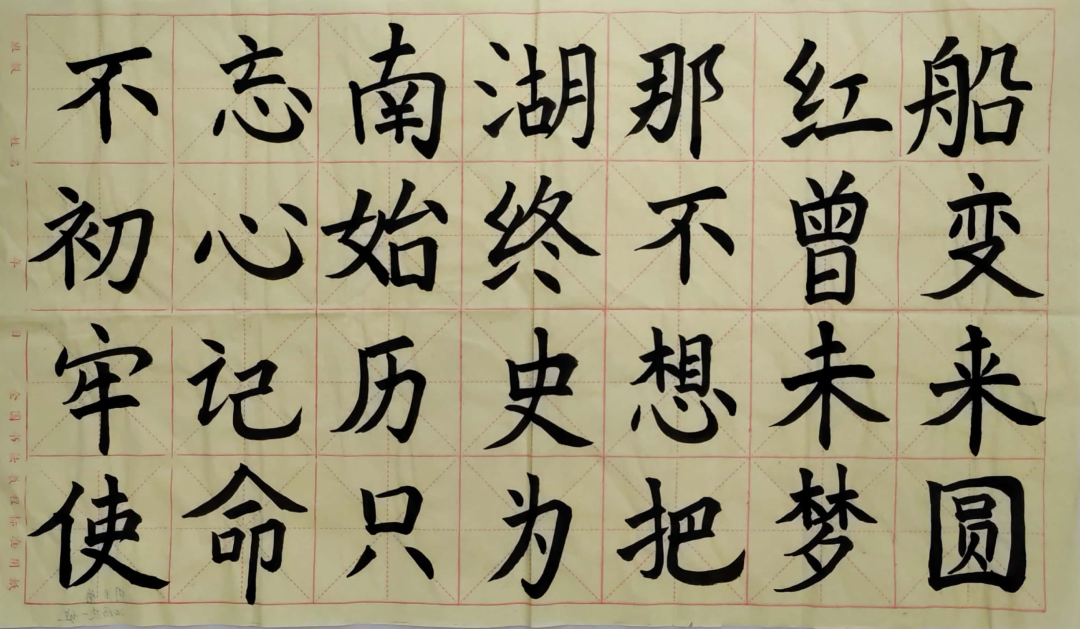 不忘南湖那红船
初心始终不曾变
牢记历史想未来
使命只为把梦圆